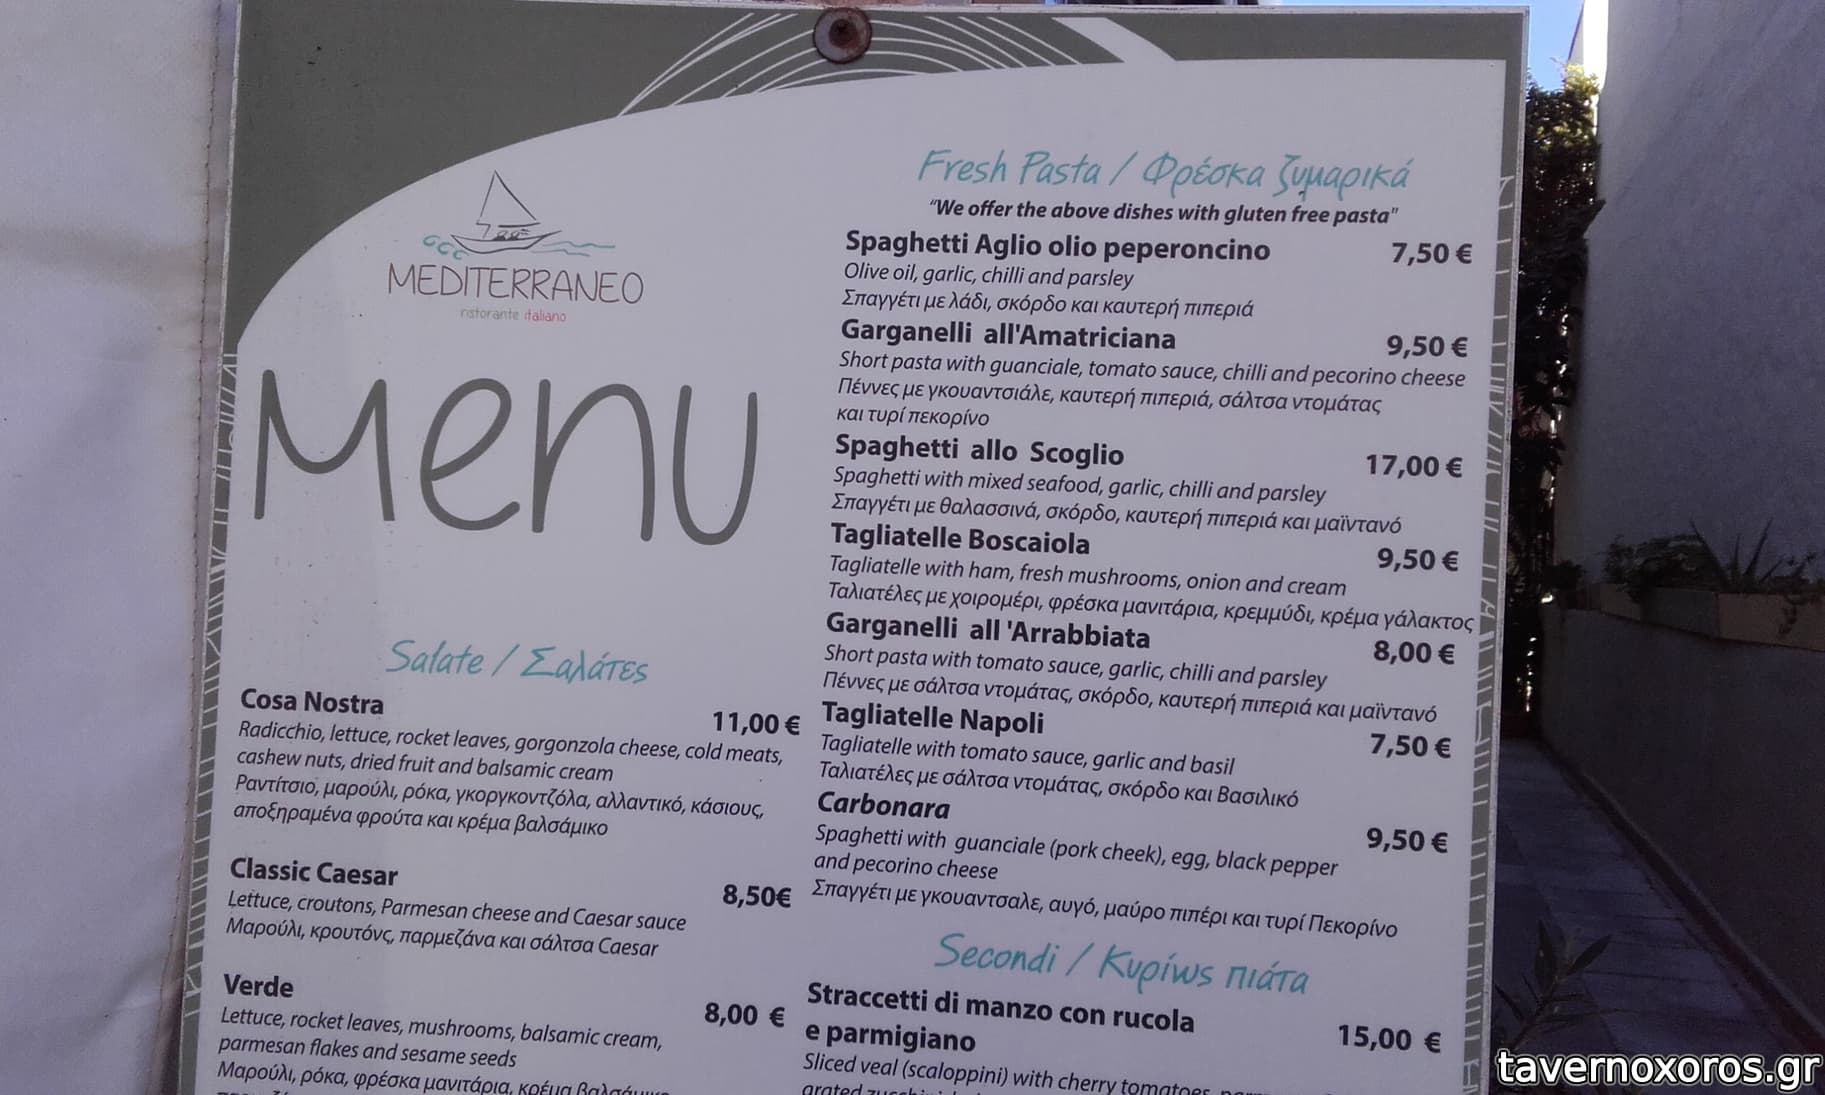 MEDITERRANEO
ristorante italiano
Menu
Salate / Σαλάτες
Cosa Nostra
11,00 €
Radicchio, lettuce, rocket leaves, gorgonzola cheese, cold meats,
cashew nuts, dried fruit and balsamic cream
Ραντίτσιο, μαρούλι, ρόκα, γκοργκοντζόλα, αλλαντικό, κάσιους,
αποξηραμένα φρούτα και κρέμα βαλσάμικο
Classic Caesar
8,50€
Lettuce, croutons, Parmesan cheese and Caesar sauce
Μαρούλι, κρουτόνς, παρμεζάνα και σάλτσα Caesar
Verde
8,00 €
Lettuce, rocket leaves, mushrooms, balsamic cream,
parmesan flakes and sesame seeds
Μαρούλι, ρόκα, φρέσκα μανιτάρια, κρέμα βαλσάμικο
Fresh Pasta / Φρέσκα ζυμαρικά
"We offer the above dishes with gluten free pasta"
Spaghetti Aglio olio peperoncino 7,50 €
Olive oil, garlic, chilli and parsley
Σπαγγέτι με λάδι, σκόρδο και καυτερή πιπεριά
Garganelli all'Amatriciana 9,50 €
Short pasta with guanciale, tomato sauce, chilli and pecorino cheese
Πέννες με γκουαντσιάλε, καυτερή πιπεριά, σάλτσα ντομάτας
και τυρί πεκορίνο
Spaghetti allo Scoglio 17,00 €
Spaghetti with mixed seafood, garlic, chilli and parsley
Σπαγγέτι με θαλασσινά, σκόρδο, καυτερή πιπεριά και μαϊντανό
Tagliatelle Boscaiola 9,50 €
Tagliatelle with ham, fresh mushrooms, onion and cream
Ταλιατέλες με χοιρομέρι, φρέσκα μανιτάρια, κρεμμύδι, κρέμα γάλακτος
Garganelli all 'Arrabbiata 8,00 €
Short pasta with tomato sauce, garlic, chilli and parsley
Πέννες με σάλτσα ντομάτας, σκόρδο, καυτερή πιπεριά και μαϊντανό
Tagliatelle Napoli 7,50 €
Tagliatelle with tomato sauce, garlic and basil
Ταλιατέλες με σάλτσα ντομάτας, σκόρδο και Βασιλικό
Carbonara 9,50 €
Spaghetti with guanciale (pork cheek), egg, black pepper
and pecorino cheese
Σπαγγέτι με γκουαντσαλε, αυγό, μαύρο πιπέρι και τυρί Πεκορίνο
Secondi / Κυρίως πιάτα
Straccetti di manzo con rucola
e parmigiano 15,00 €
Sliced veal (scaloppini) with cherry tomatoes,
tavernoxoros.gr